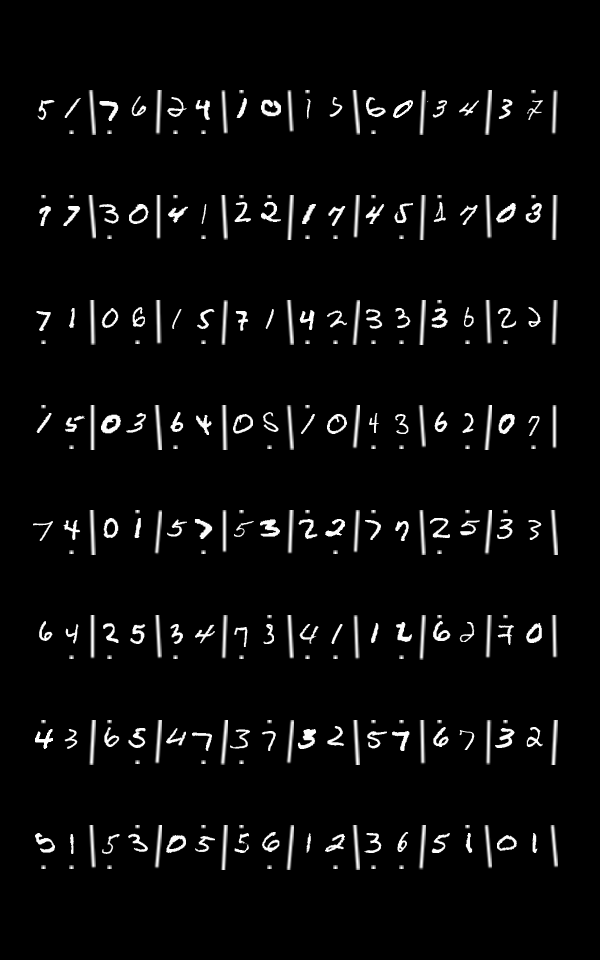 5 1 | 7 6 | 2 4 | 1 0 | 1 5 | 6 0 | 3 4 | 3 7 |
1 7 | 3 0 | 4 1 | 2 2 | 1 7 | 4 5 | 1 7 | 0 3 |
7 1 | 0 6 | 1 5 | 7 1 | 4 2 | 3 3 | 3 6 | 2 2 |
1 5 | 0 3 | 6 4 | 0 6 | 1 0 | 4 3 | 6 2 | 0 7 |
7 4 | 0 1 | 5 7 | 5 3 | 2 2 | 7 7 | 2 5 | 3 3 |
6 4 | 2 5 | 3 4 | 7 3 | 4 1 | 1 2 | 6 2 | 7 0 |
4 3 | 6 5 | 4 7 | 3 7 | 3 2 | 5 7 | 6 7 | 3 2 |
5 1 | 5 3 | 0 5 | 5 6 | 1 2 | 3 6 | 5 1 | 0 1 |